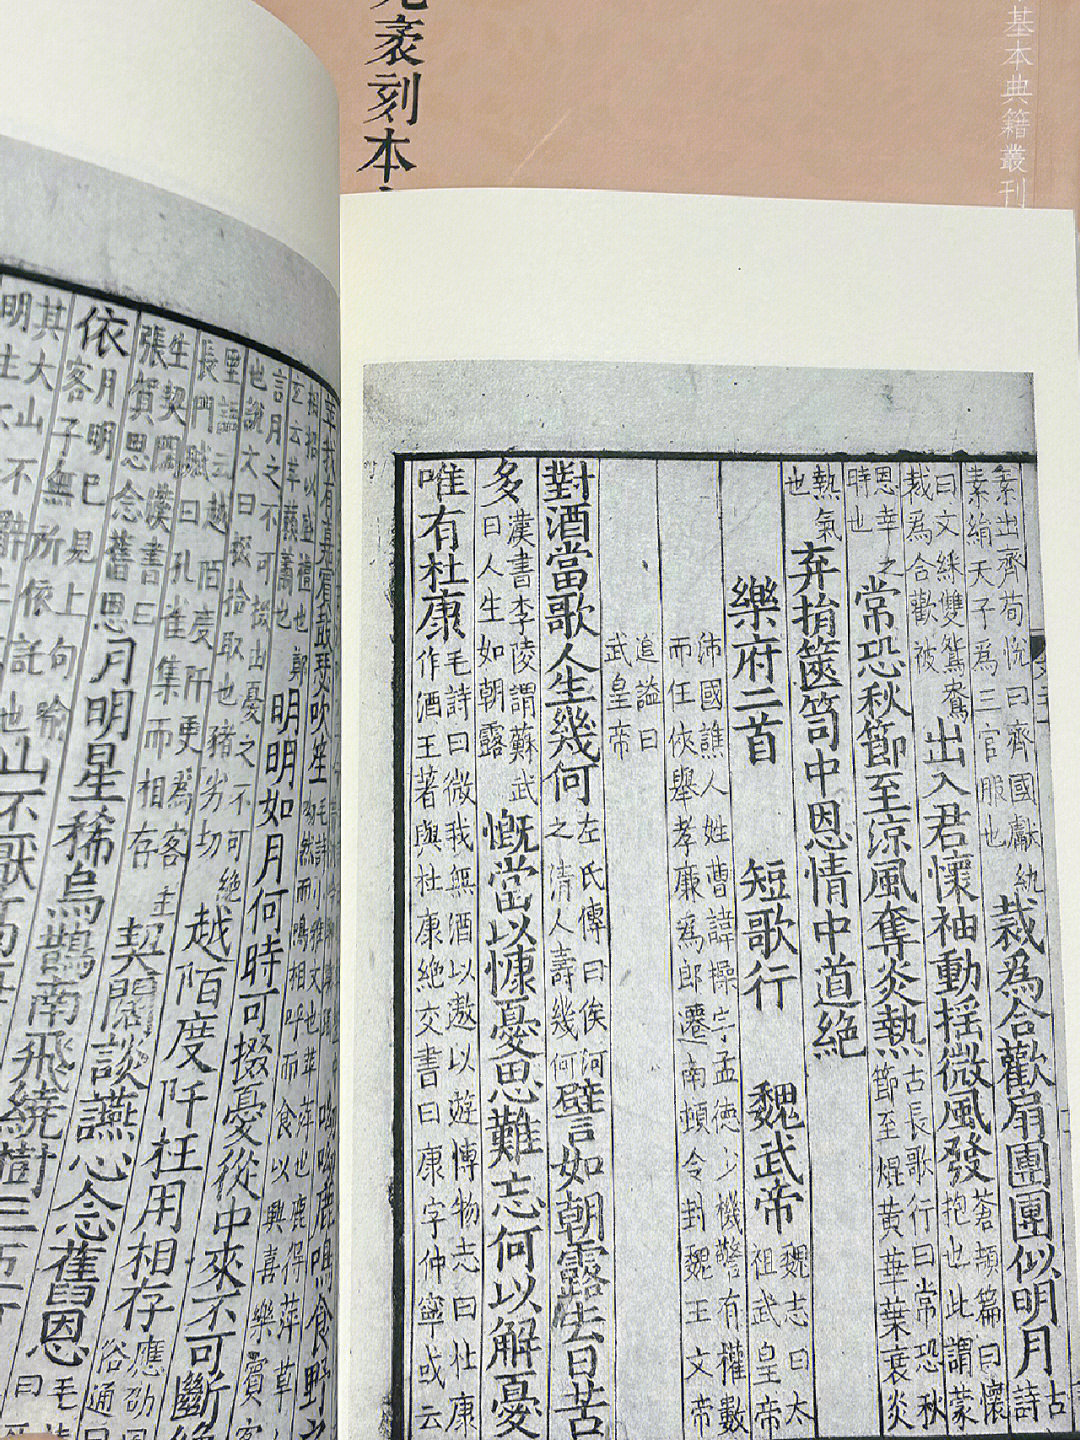 袤刻本
基本典籍叢刊
素出齊荀悅曰齊國獻紈素絹天子為三官服也裁為合歡扇團團似明月古詩
曰文綵雙鴛鴦裁為合歡被出入君懷袖動搖微風發蒼頡篇曰懷抱也此謂蒙
恩幸之時也常恐秋節至涼風奪炎熱古長歌行曰常恐秋節至焜黃華葉衰炎
熱氣也弃捐篋笥中恩情中道絕
樂府二首 短歌行 魏武帝魏志曰太祖武皇帝
沛國譙人姓曹諱操字孟德少機警有權數而任俠舉孝廉為郎遷南頓令封魏王文帝
追謚曰武皇帝
對酒當歌人生幾何左氏傳曰俟河之清人壽幾何譬如朝露去日苦
多漢書李陵謂蘇武曰人生如朝露慨當以慷憂思難忘何以解憂
唯有杜康毛詩曰微我無酒以遨以遊博物志曰杜康作酒王著與杜康絕交書曰康字仲寧或云
鼓瑟吹笙呦呦鹿鳴食野之
言月之不可掇由憂之不可絕也說文曰掇拾取也豬劣切
明明如月何時可掇憂從中來不可斷絕
里語云越陌度阡更為客主長門賦曰孔雀集而相存越陌度阡枉用相存應劭
生契闊漢書曰張賀思念舊恩契闊談讌心念舊恩
依月明已見上句喻客子無所依託也月明星稀烏鵲南飛繞樹三
其大山不